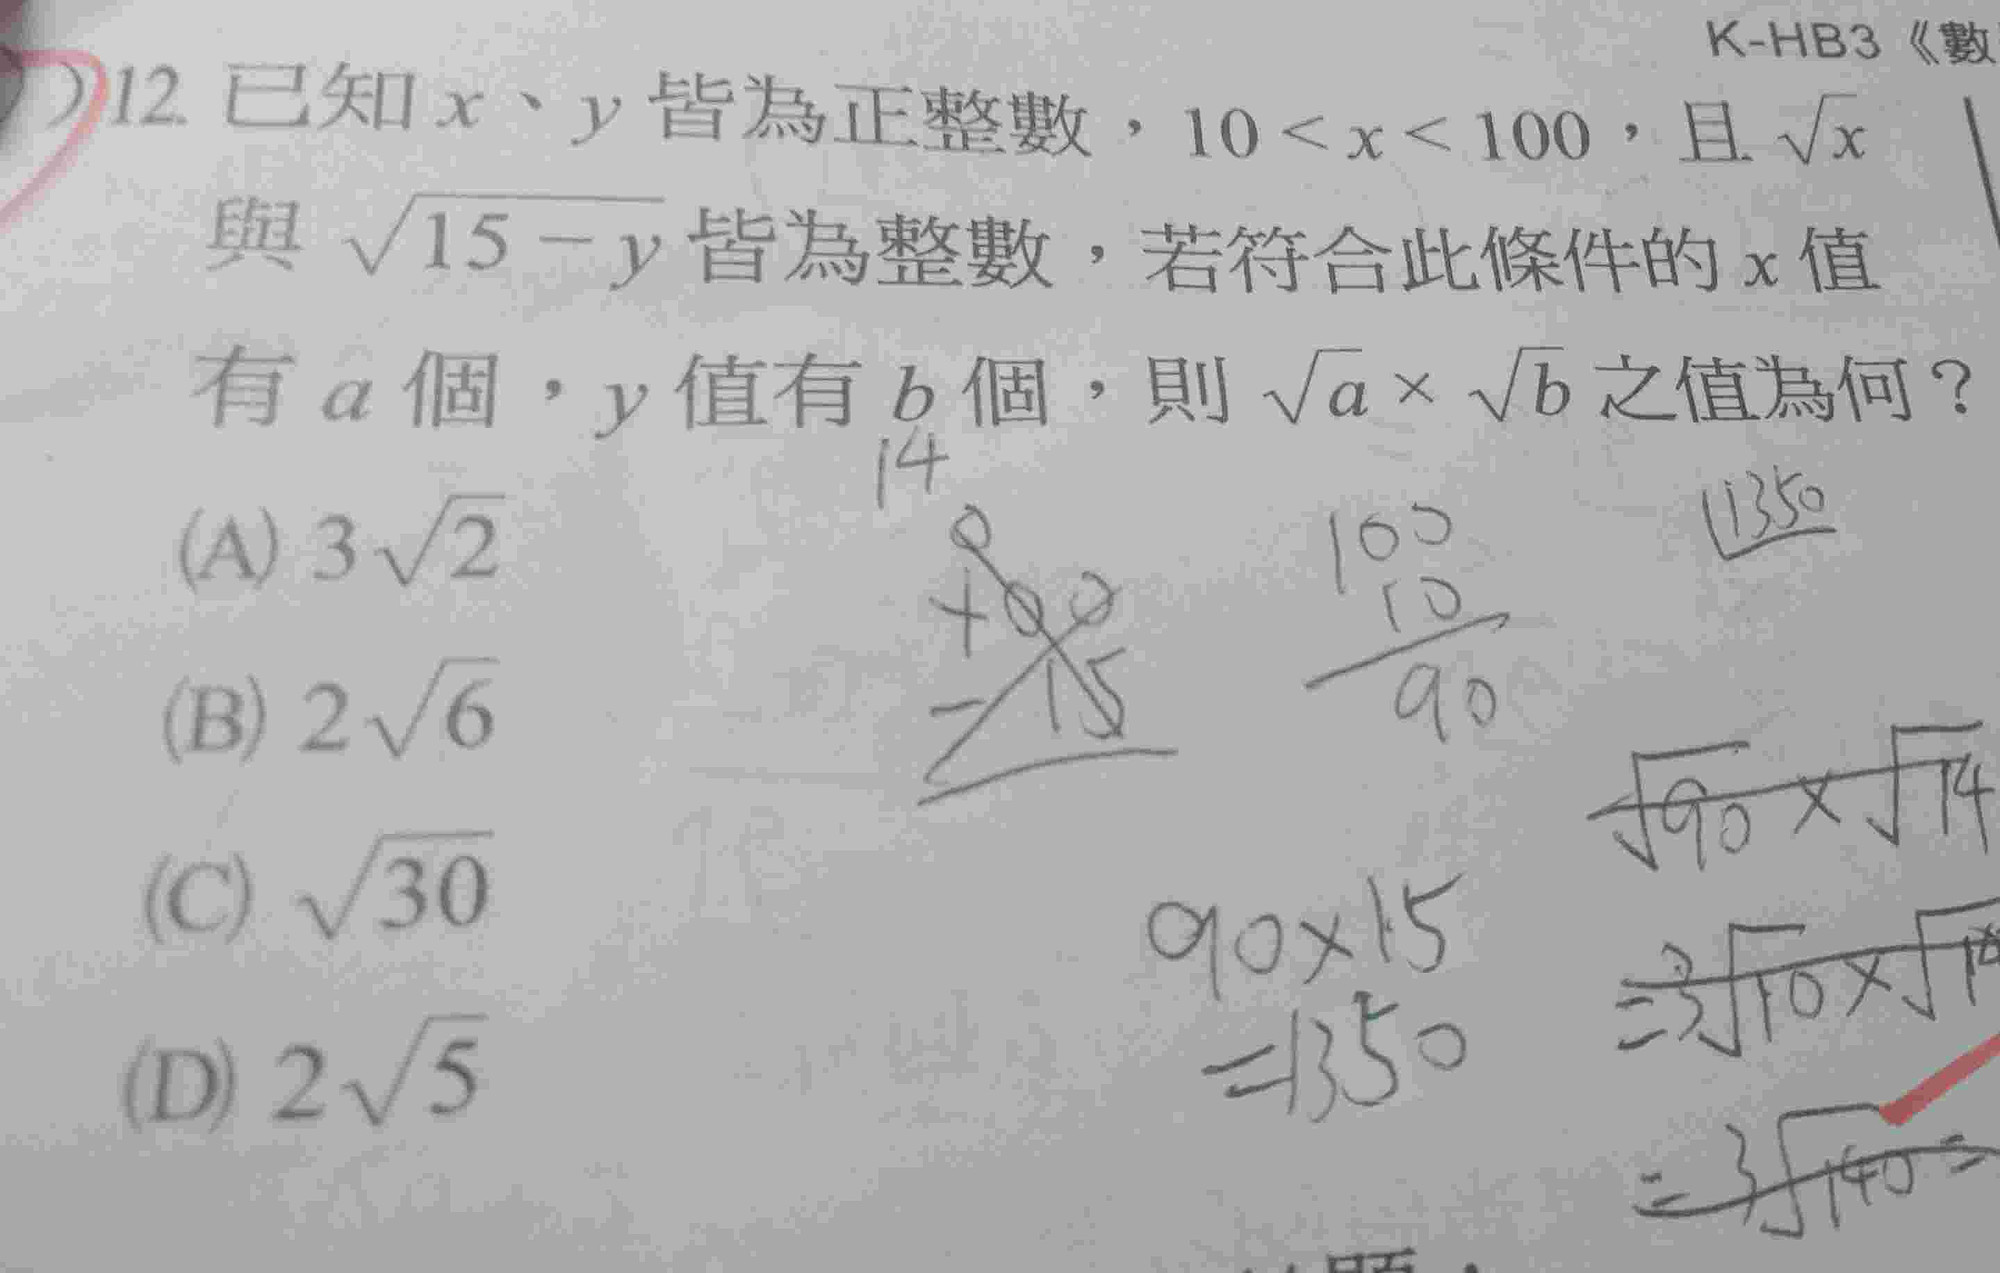 K-HB3《數
)12. 已知 x、y 皆為正整數，10 < x < 100，且 √x
與 √(15 − y) 皆為整數，若符合此條件的 x 值
有 a 個，y 值有 b 個，則 √a × √b 之值為何？
14
(A) 3√2
(B) 2√6
(C) √30
(D) 2√5
100
10
90
1350
15
90×15
=1350
√90 × √14
=3√10 × √14
=3√140 =